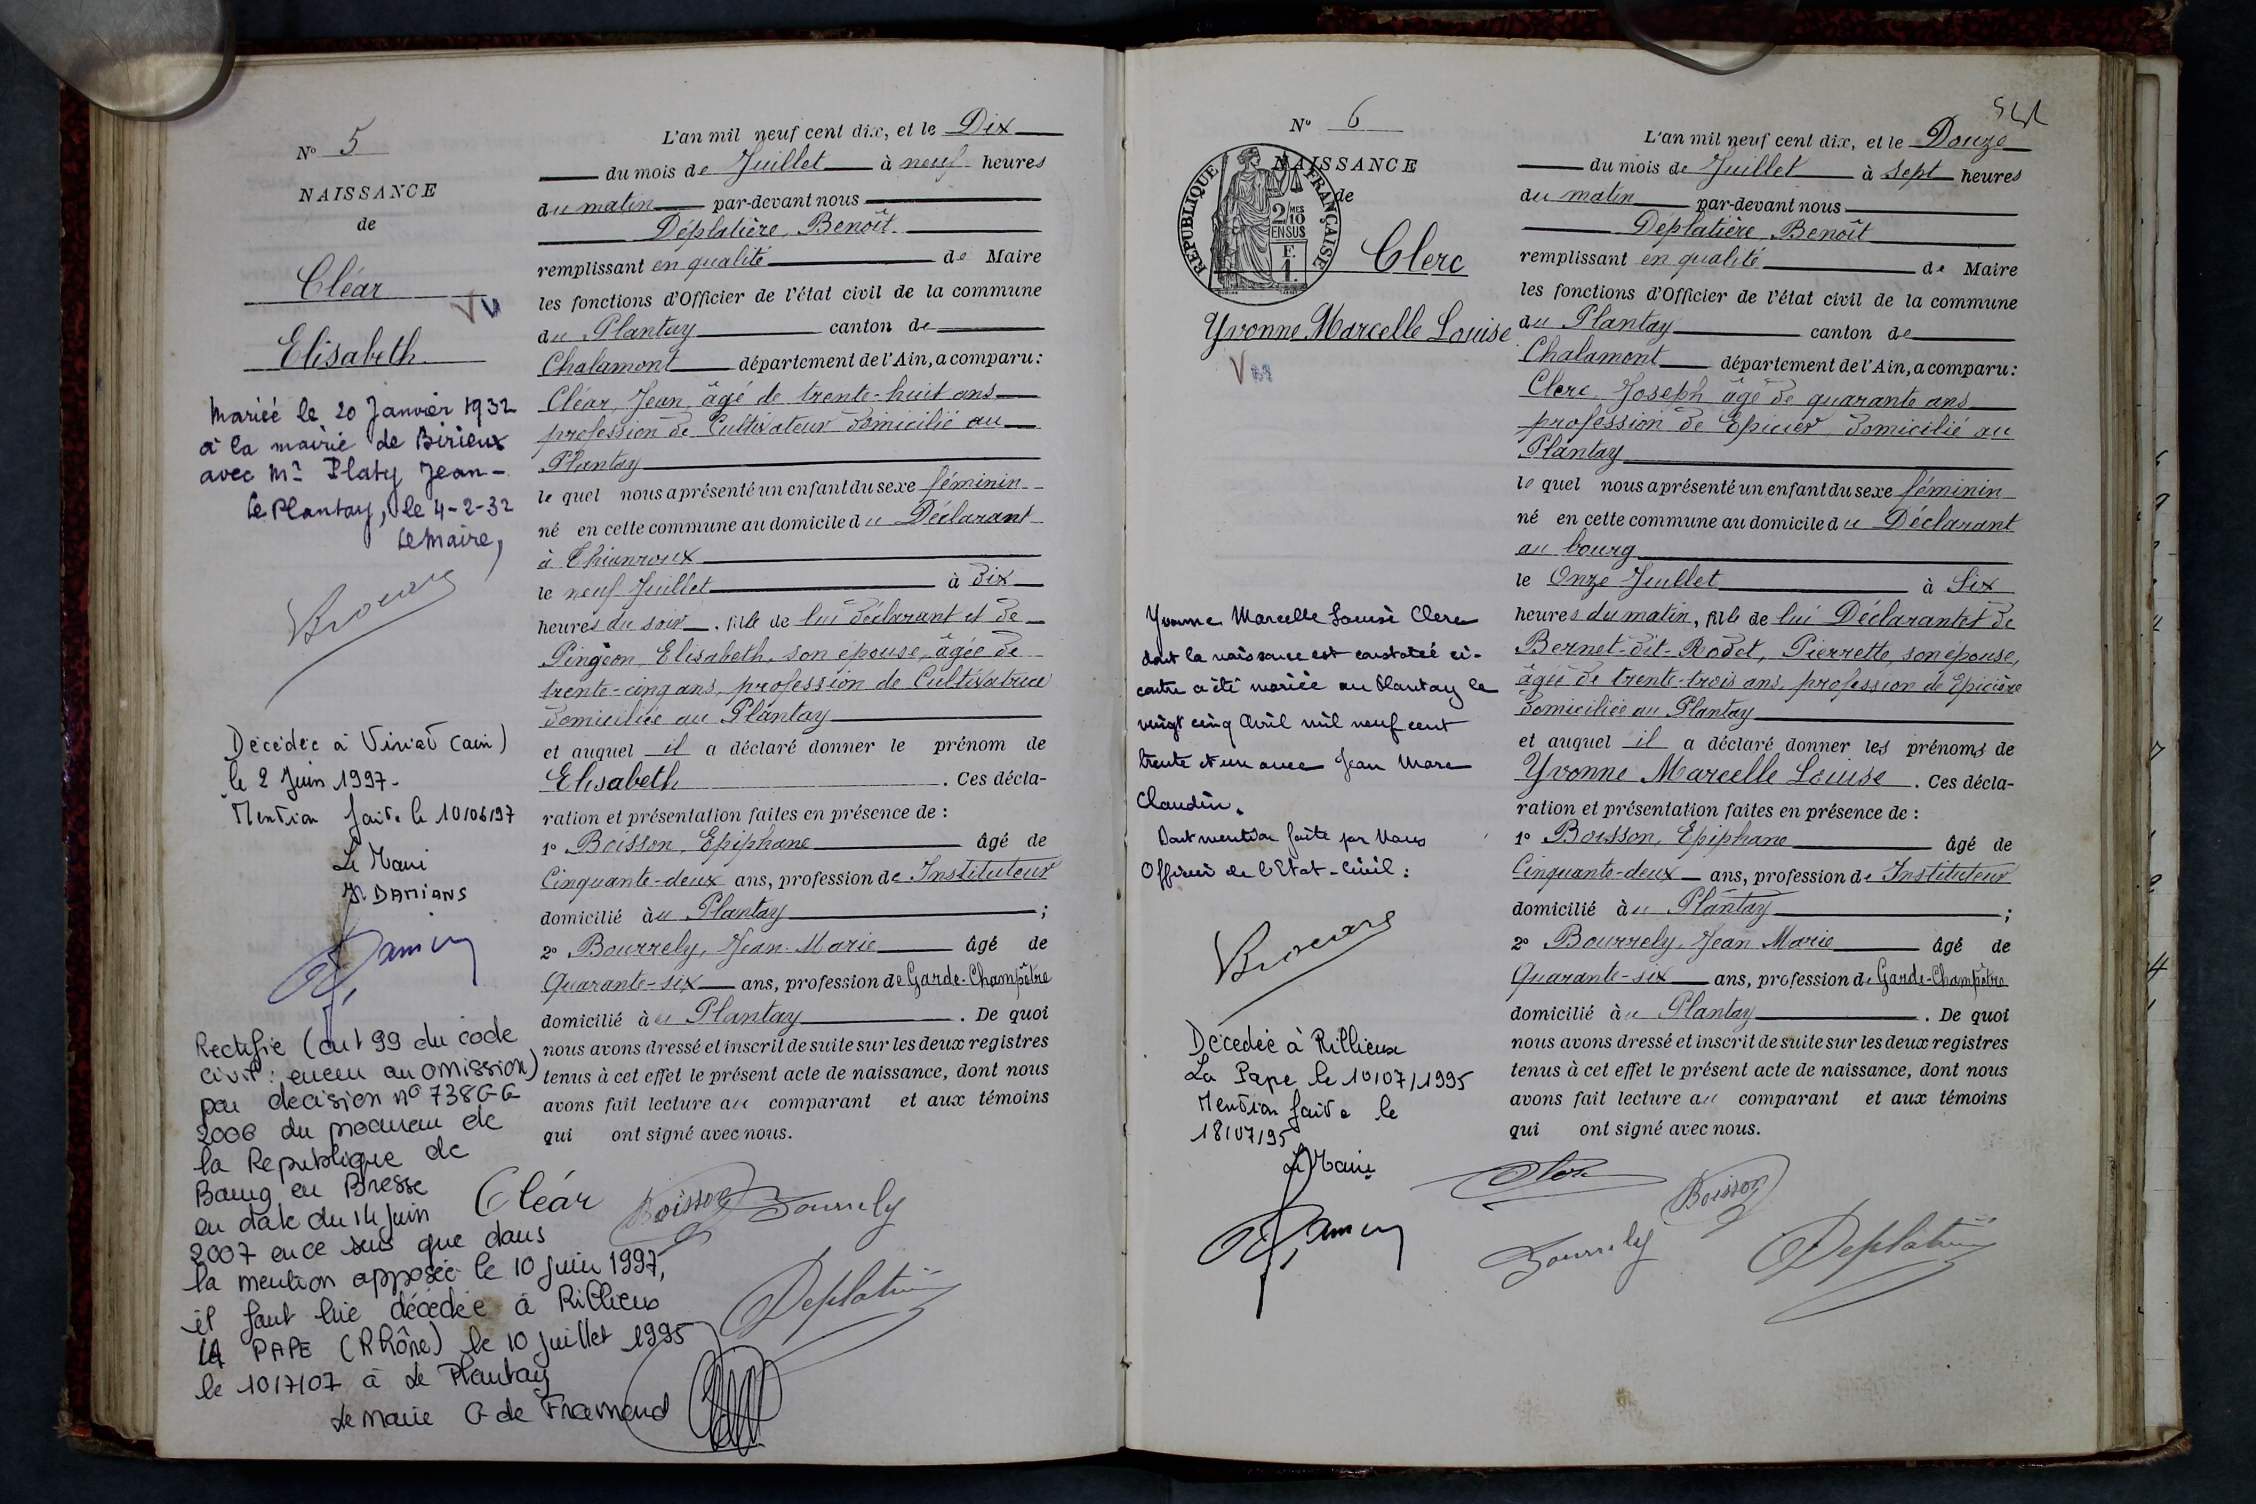 N° 5
NAISSANCE
de
Cléar
Elisabeth
Mariée le 20 Janvier 1932
à la mairie de Birieux
avec Mr Platy Jean-
Le Plantay, le 4-2-32
Le Maire,
Décédée à Viriat (ain)
le 2 Juin 1997-
Mention faite le 10/06/97
Le Maire
DAMIANS
Rectifié (art 99 du code
civil : erreur ou omission)
par décision n° 738GG
2006 du procureur de
la Republique de
Bourg en Bresse
en date du 14 juin
2007 en ce sens que dans
la mention apposée le 10 juin 1997,
il faut lire décédée à Rillieux
LA PAPE (Rhône) le 10 juillet 1995
le 10/7/07 à Le Plantay
Le Maire G de Framond
L'an mil neuf cent dix, et le Dix
du mois de Juillet à neuf heures
du matin par-devant nous
Déplatière, Benoît
remplissant en qualité de Maire
les fonctions d'Officier de l'état civil de la commune
du Plantay canton de
Chalamont département de l'Ain, a comparu :
Cléar, Jean, âgé de trente-huit ans
profession de Cultivateur domicilié au
Plantay
le quel nous a présenté un enfant du sexe féminin
né en cette commune au domicile du Déclarant
à
le neuf Juillet à dix
heures du soir, fille de lui déclarant et de
Pingeon, Elisabeth, son épouse, âgée de
trente-cinq ans, profession de Cultivatrice
domiciliée au Plantay
et auquel il a déclaré donner le prénom de
Elisabeth. Ces décla-
ration et présentation faites en présence de :
1° Boisson, Epiphane âgé de
Cinquante-deux ans, profession de Instituteur
domicilié au Plantay ;
2° Bourrely, Jean-Marie âgé de
Quarante-six ans, profession de Garde-Champêtre
domicilié au Plantay. De quoi
nous avons dressé et inscrit de suite sur les deux registres
tenus à cet effet le présent acte de naissance, dont nous
avons fait lecture au comparant et aux témoins
qui ont signé avec nous.
Cléar Boisson Bourrely
Deplatière
N° 6
NAISSANCE
de
RÉPUBLIQUE FRANÇAISE
2/10 MES
EN SUS
F.
1.
Clerc
Yvonne Marcelle Louise
Yvonne Marcelle Louise Clerc
dont la naissance est constatée ci-
contre a été mariée au Plantay le
vingt cinq Avril mil neuf cent
trente et un avec Jean Marc
Claudin.
Dont mention faite par Nous
Officier de l'Etat-Civil :
Décédée à Rillieux
La Pape le 10/07/1995
Mention faite le
18/07/95
Le Maire
L'an mil neuf cent dix, et le Douze
du mois de Juillet à sept heures
du matin par-devant nous
Déplatière Benoît
remplissant en qualité de Maire
les fonctions d'Officier de l'état civil de la commune
du Plantay canton de
Chalamont département de l'Ain, a comparu :
Clerc Joseph âgé de quarante ans
profession de Epicier domicilié au
Plantay
le quel nous a présenté un enfant du sexe féminin
né en cette commune au domicile du Déclarant
au bourg
le Onze Juillet à Six
heures du matin, fille de lui Déclarant et de
Bernet-dit-Rodet, Pierrette, son épouse,
âgée de trente-trois ans, profession de Epicière
domiciliée au Plantay
et auquel il a déclaré donner les prénoms de
Yvonne Marcelle Louise. Ces décla-
ration et présentation faites en présence de :
1° Boisson, Epiphane âgé de
Cinquante-deux ans, profession de Instituteur
domicilié au Plantay ;
2° Bourrely, Jean Marie âgé de
Quarante-six ans, profession de Garde-Champêtre
domicilié au Plantay. De quoi
nous avons dressé et inscrit de suite sur les deux registres
tenus à cet effet le présent acte de naissance, dont nous
avons fait lecture au comparant et aux témoins
qui ont signé avec nous.
Clerc Boisson
Bourrely Deplatière